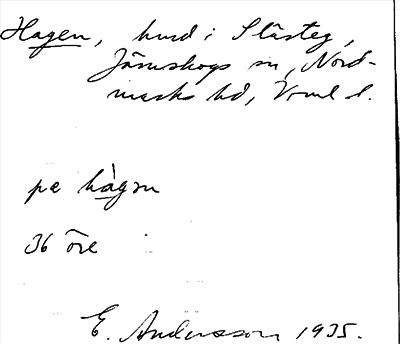 Hagen, hmd i Slästeg,
Järnskogs sn, Nord-
marks hd, Vrml l.
pæ hàgɷn
36 öre
E. Andersson 1935.